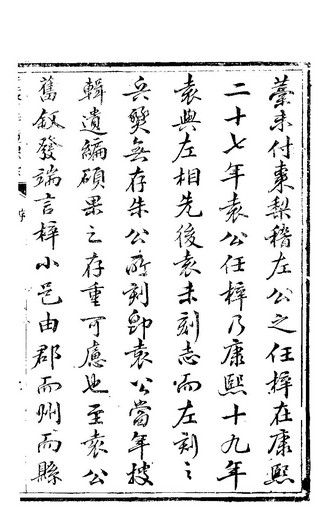 藁未付棗梨稽左公之任梓在康熙
二十七年袁公任梓乃康熙十九年
袁與左相先後袁未刻志而左刻之
兵燹無存朱公所刻卽袁公當年搜
輯遺編碩果之存重可慮也至袁公
舊叙發端言梓小邑由郡而州而縣
序